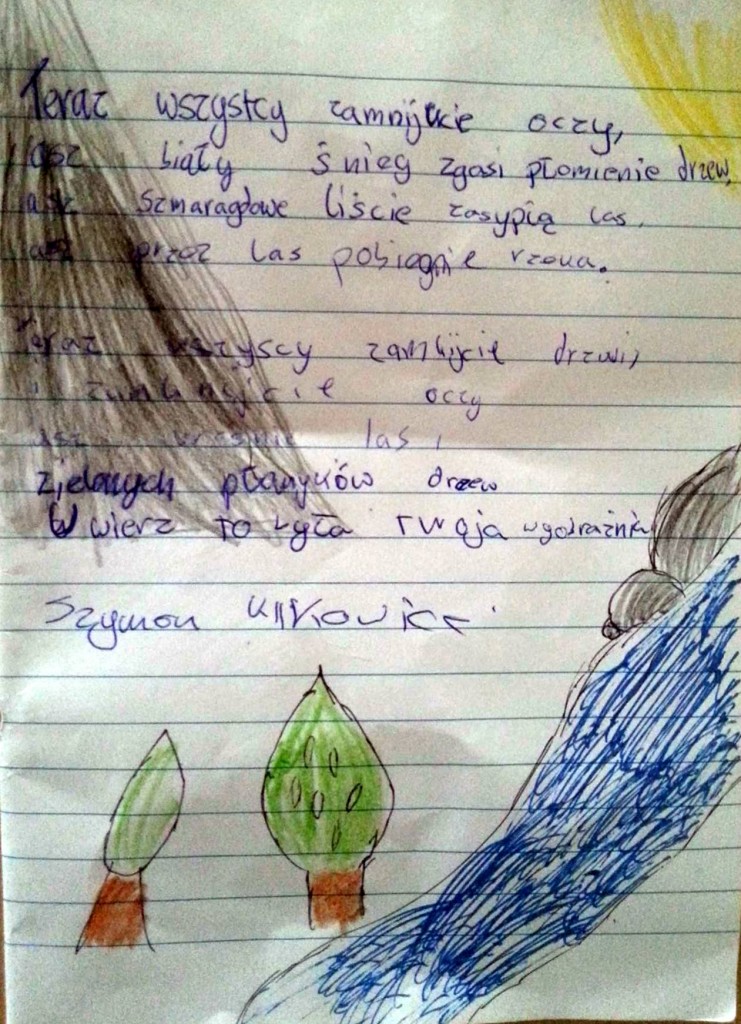 Teraz wszystcy zamnijcie oczy,
asz biały śnieg zgasi płomienie drzew,
asz szmaragdowe liście zasypią las,
asz przez las pobiegnie rzeka.
Teraz wszyscy zamknijcie drzwi,
i zamknijcie oczy
asz las i
zielonych płomyków drzew
Uwierz to była twoja wyobraźnia
Szymon